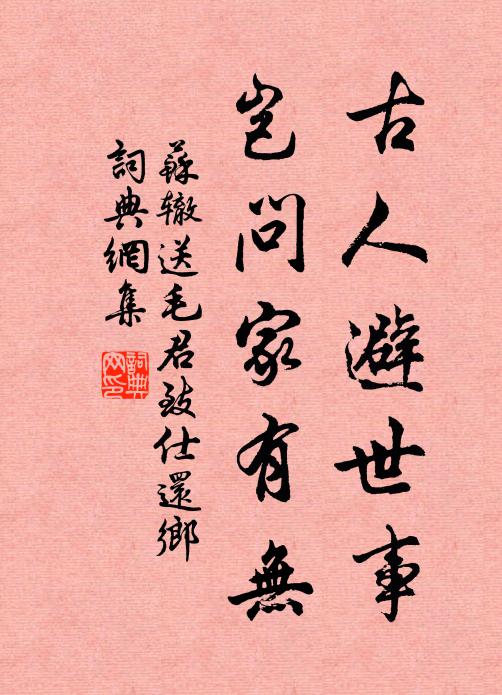 古人避世事
豈問家有無
蘇辙送毛君致仕還鄉
詞典網集
詞典网印